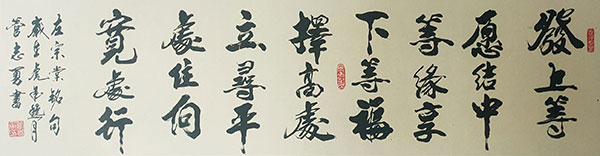 發上等
愿结中
等缘享
下等福
擇高處
立尋平
處住向
寬處行
左宗棠銘句
歲在虎年魏月
管志夏書